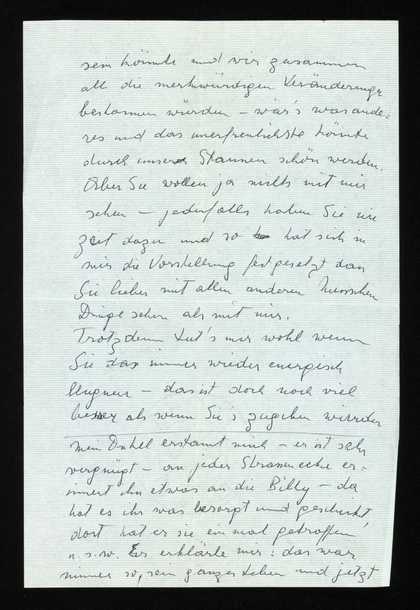 sein könnte und wir zusammen
all die merkwürdigen Veränderunge
bestaunen würden – wär's was ande-
res und das unerfreulichste könnte
durch unser Staunen schön werden.
Aber Sie wollen ja nichts mit mir
sehen – jedenfalls haben Sie nie
Zeit dazu und so hat sich in
mir die Vorstellung festgesetzt dass
Sie lieber mit allen anderen Menschen
Dinge sehen als mit mir.
Trotzdem tut's mir wohl wenn
Sie das immer wieder energisch
läugnen – das ist doch noch viel
besser als wenn Sie's zugeben würden
Mein Onkel erstaunt mich – er ist sehr
vergnügt – an jeder Strassenecke er-
innert ihn etwas an die Billy – da
hat es ihr was besorgt und geschickt
dort hat er sie einmal getroffen
u.s.w. Er erklärte mir: das war
immer so, sein ganzes Leben und jetzt